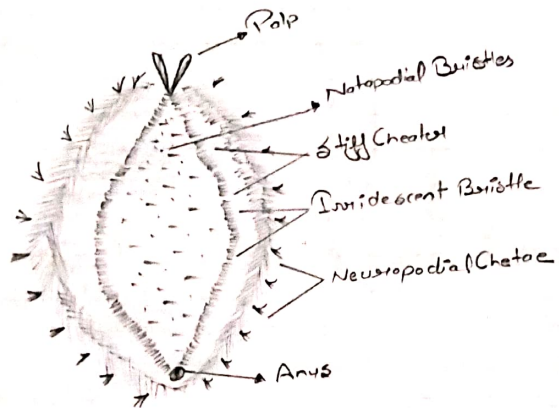 Palp
Notopodial Bristles
Stiff Cheatea
Irridescent Bristle
Neuropodial Chetae
Anus